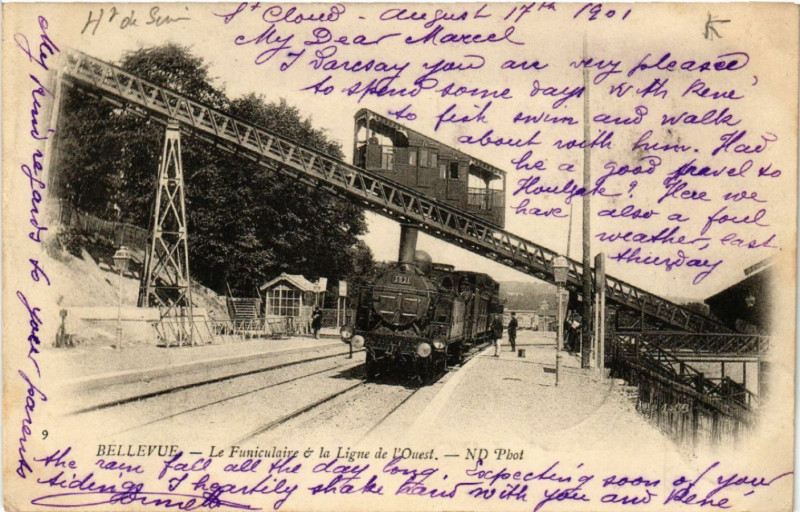 Hts de Seine
St Cloud - August 17th 1901
My Dear Marcel
I Daresay you are very pleased
to spend some days with René
to fish swim and walk
about with him. Had
he a good travel to
Houlgate? Here we
have also a foul
weather, last
thursday
the rain fall all the day long. Expecting soon of your
tidings I heartily shake hand with you and René.
My kind regards to your parents
9
BELLEVUE. — Le Funiculaire & la Ligne de l'Ouest. — ND Phot